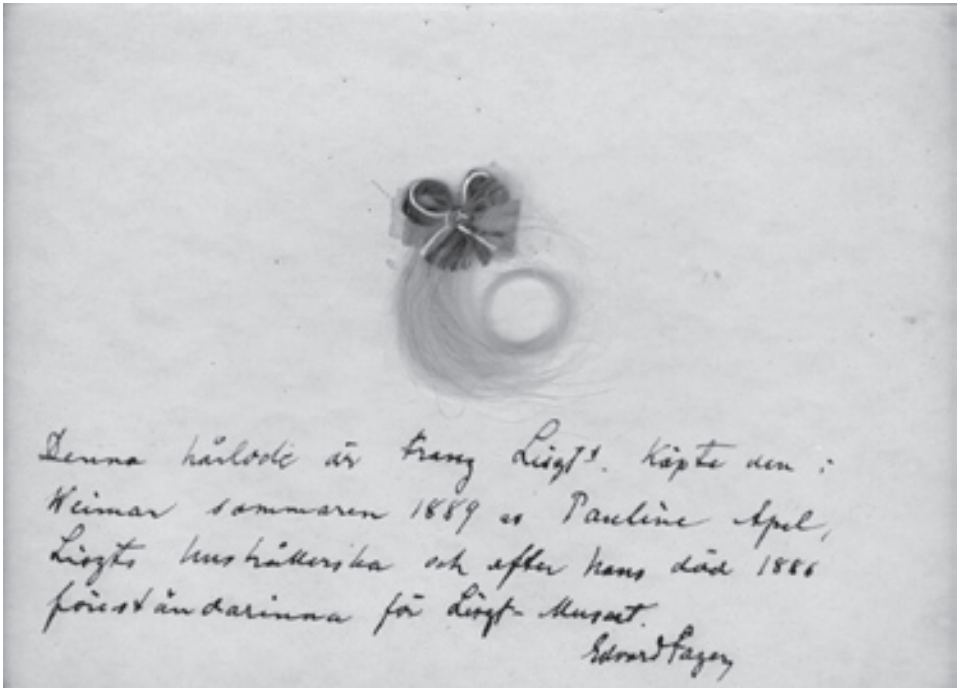 Denna hårlock är Franz Liszts. Köpte den i
Weimar sommaren 1889 av Pauline Apel,
Liszts hushållerska och efter hans död 1886
föreståndarinna för Liszt-Museet.
Edvard